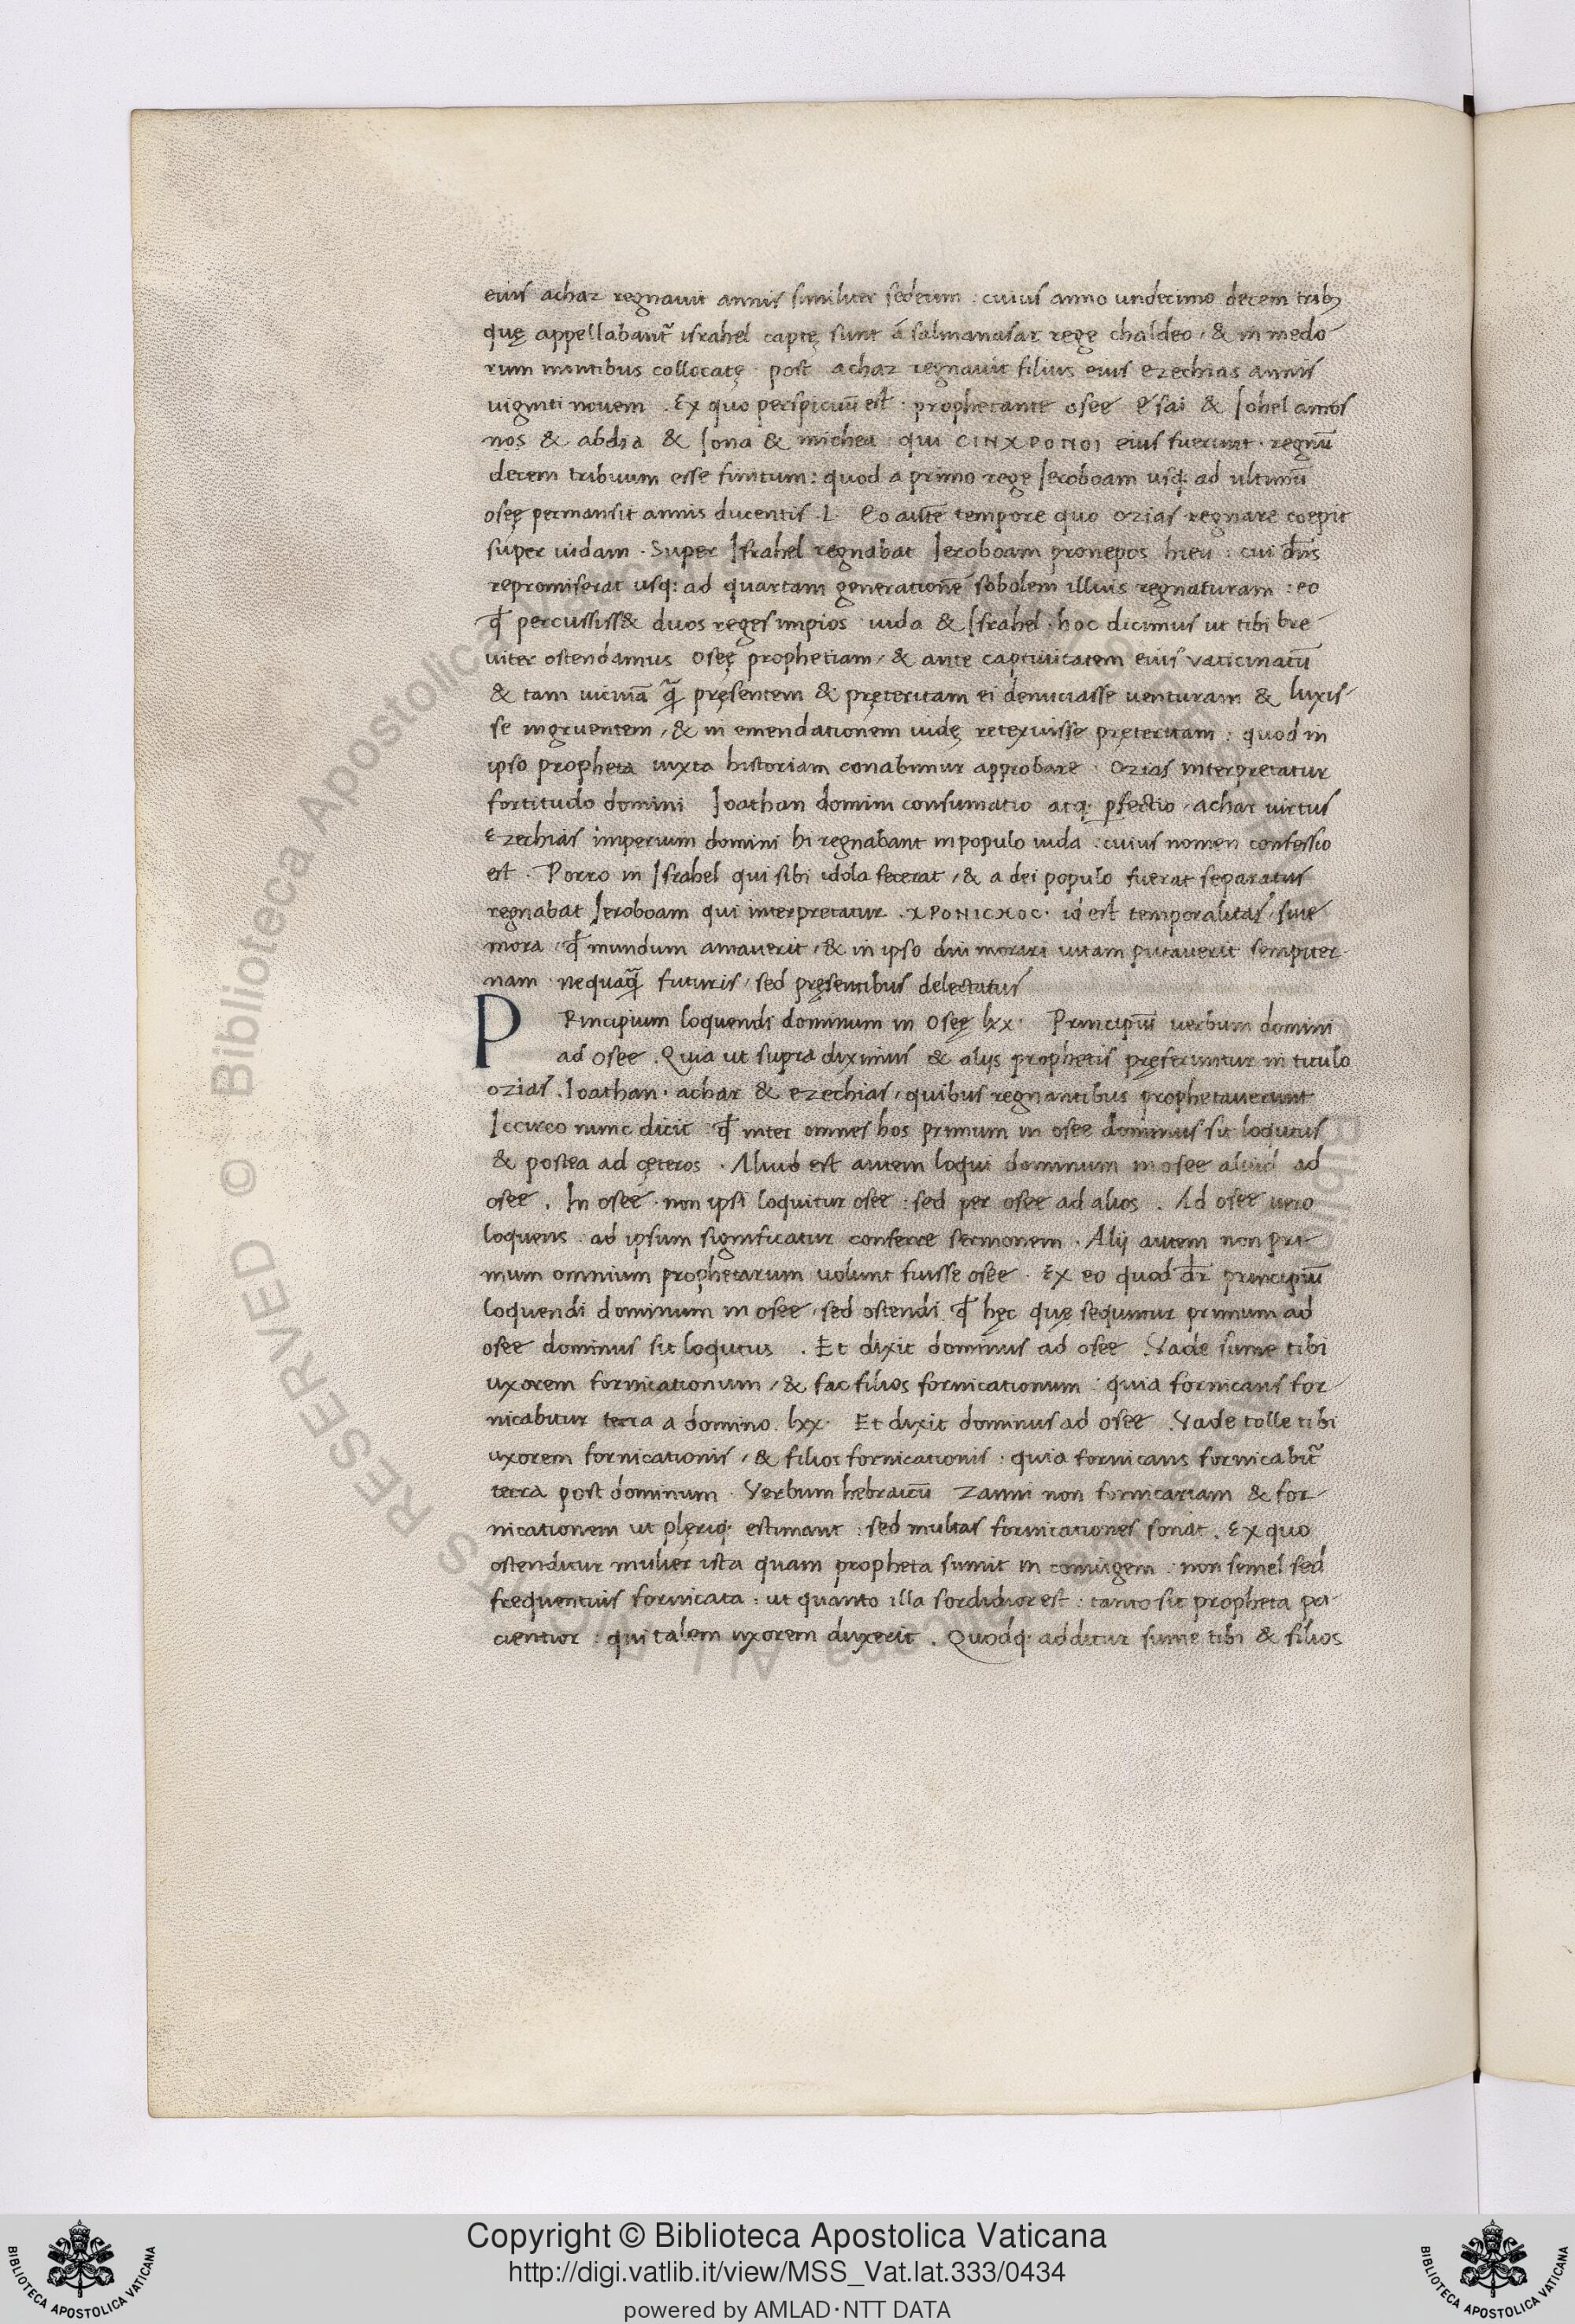 eius achaz regnauit annis similiter sedecim : cuius anno undecimo decem tribꝫ
quę appellabant᷑ israhel captę sunt á salmanasar rege chaldeo, & in medo
rum montibus collocatę · post achaz regnauit filius eius ezechias annis
uiginti nouem . Ex quo perspicuū est · prophetante osee esai & Iohel amos
nos & abdia & Iona & michea : qui CINXPONOI eius fuerunt · regnū
decem tribuum esse finitum : quod a primo rege Ieroboam usq: ad ultimū
oseę permansit annis ducentis .L. Eo autē tempore quo ozias regnare coepit
super iudam . Super Israhel regnabat Ieroboam pronepos hieu : cui dn̄s
repromiserat usq: ad quartam generationē sobolem illius regnaturam : eo
qđ percussiss& duos reges impios iuda & Israhel · hoc dicimus ut tibi bre
uiter ostendamus oseę prophetiam, & ante captiuitatem eius vaticinatū
& tam uicinā q̄ pręsentem & pręteritam ei denuciasse venturam & luxis
se ingruentem, & in emendationem iudę retexuisse pręteritam : quod in
ipso propheta iuxta historiam conabimur approbare · Ozias interpretatur
fortitudo domini Ioathan domini consumatio atq: ꝑfectio, achar uirtus
Ezechias imperium domini hi regnabant in populo iuda : cuius nomen confessio
est . Porro in Israhel qui sibi idola fecerat, & a dei populo fuerat separatus
regnabat Ieroboam qui interpretatur . XPONICXOC · id est temporalitas, siue
mora, qđ mundum amauerit, & in ipso diu morari uitam putauerit sempiter
nam · nequaq̄ futuris, sed pręsentibus delectatus
PRincipium loquendi dominum in Oseę lxx · Principiū uerbum domini
ad osee . Quia ut supra diximus & alijs prophetis pręferuntur in titulo
ozias . Ioathan · achar & ezechias, quibus regnantibus prophetauerunt
Iccirco nunc dicit : qđ inter omnes hos primum in osee dominus sit loqutus
& postea ad cęteros . Aliud est autem loqui dominum in osee aliud ad
osee . In osee · non ipsi loquitur osee : sed per osee ad alios . Ad osee uero
loquens · ad ipsum significatur conferre sermonem . Alij autem non pri
mum omnium prophetarum uolunt fuisse osee . Ex eo quod dr̄ principiū
loquendi dominum in osee, sed ostendi qđ hęc quę sequntur primum ad
osee dominus sit loqutus . Et dixit dominus ad osee . Vade sume tibi
uxorem fornicationum, & fac filios fornicationum : quia fornicans for
nicabitur terra a domino . lxx · Et dixit dominus ad osee . Vade tolle tibi
uxorem fornicationis, & filios fornicationis : quia fornicans fornicabit᷑
terra post dominum . Verbum hebraicū zanni non fornicariam & for
nicationem ut plęriq: estimant : sed multas fornicationes sonat . Ex quo
ostenditur mulier ista quam propheta sumit in coniugem : non semel sed
frequentius fornicata : ut quanto illa sordidior est : tanto sit propheta pa
cientior : qui talem uxorem duxerit . Quodq: additur sume tibi & filios
Copyright © Biblioteca Apostolica Vaticana
http://digi.vatlib.it/view/MSS_Vat.lat.333/0434
powered by AMLAD·NTT DATA